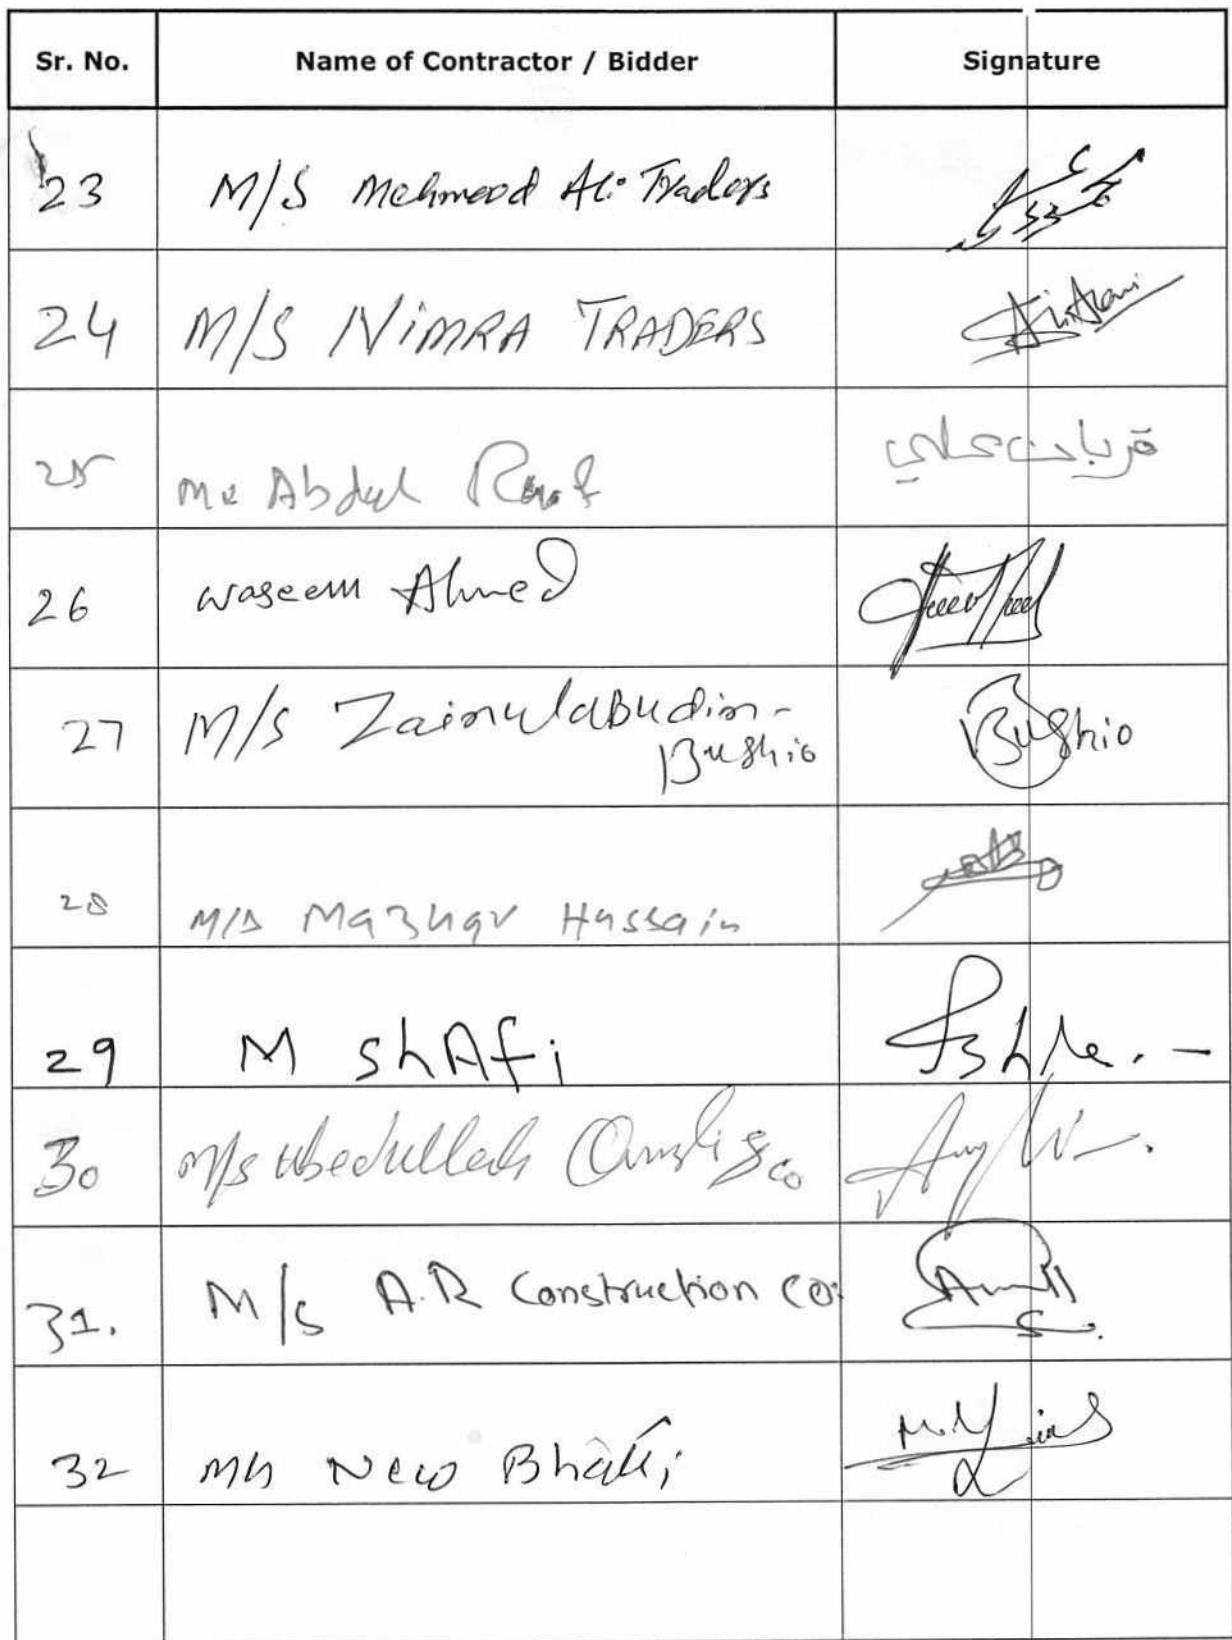 Sr. No. Name of Contractor / Bidder Signature
23 M/S Mehmood Ali Traders
24 M/S NIMRA TRADERS
25 Mr Abdul Rauf قربان علي
26 waseem Ahmed
27 M/S Zainulabudin-
Bughio Bughio
28 M/S Mazhar Hussain
29 M ShAfi
30 M/s Ubedullah & co
31. M/S A.R Construction co:
32 M/S New Bhatti